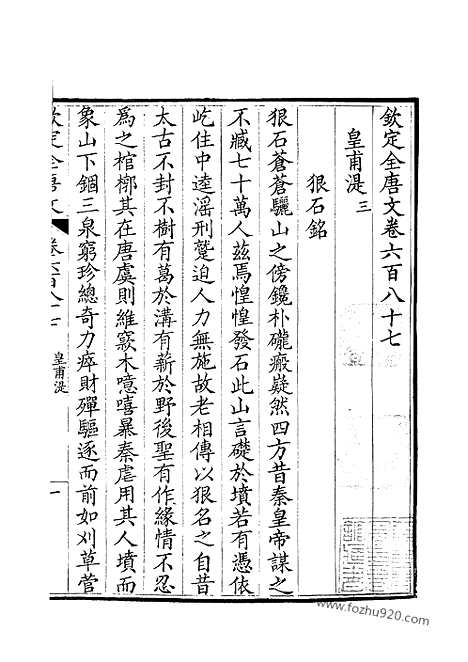 欽定全唐文卷六百八十七
皇甫湜三
狠石銘
狠石蒼蒼驪山之傍鑱朴礲瘢疑然四方昔秦皇帝謀之
不臧七十萬人茲焉惶惶發石此山言礎於墳若有憑依
屹住中逵滛刑蹙迫人力無施故老相傳以狠名之自昔
太古不封不樹有葛於溝有薪於野後聖有作緣情不忍
為之棺槨其在唐虞則維窾木噫嘻暴秦虐用其人墳而
象山下錮三泉窮珍總奇力瘁財殫驅逐而前如刈草菅
欽定全唐文
卷六百八十七
皇甫湜
一
www.fozhu920.com